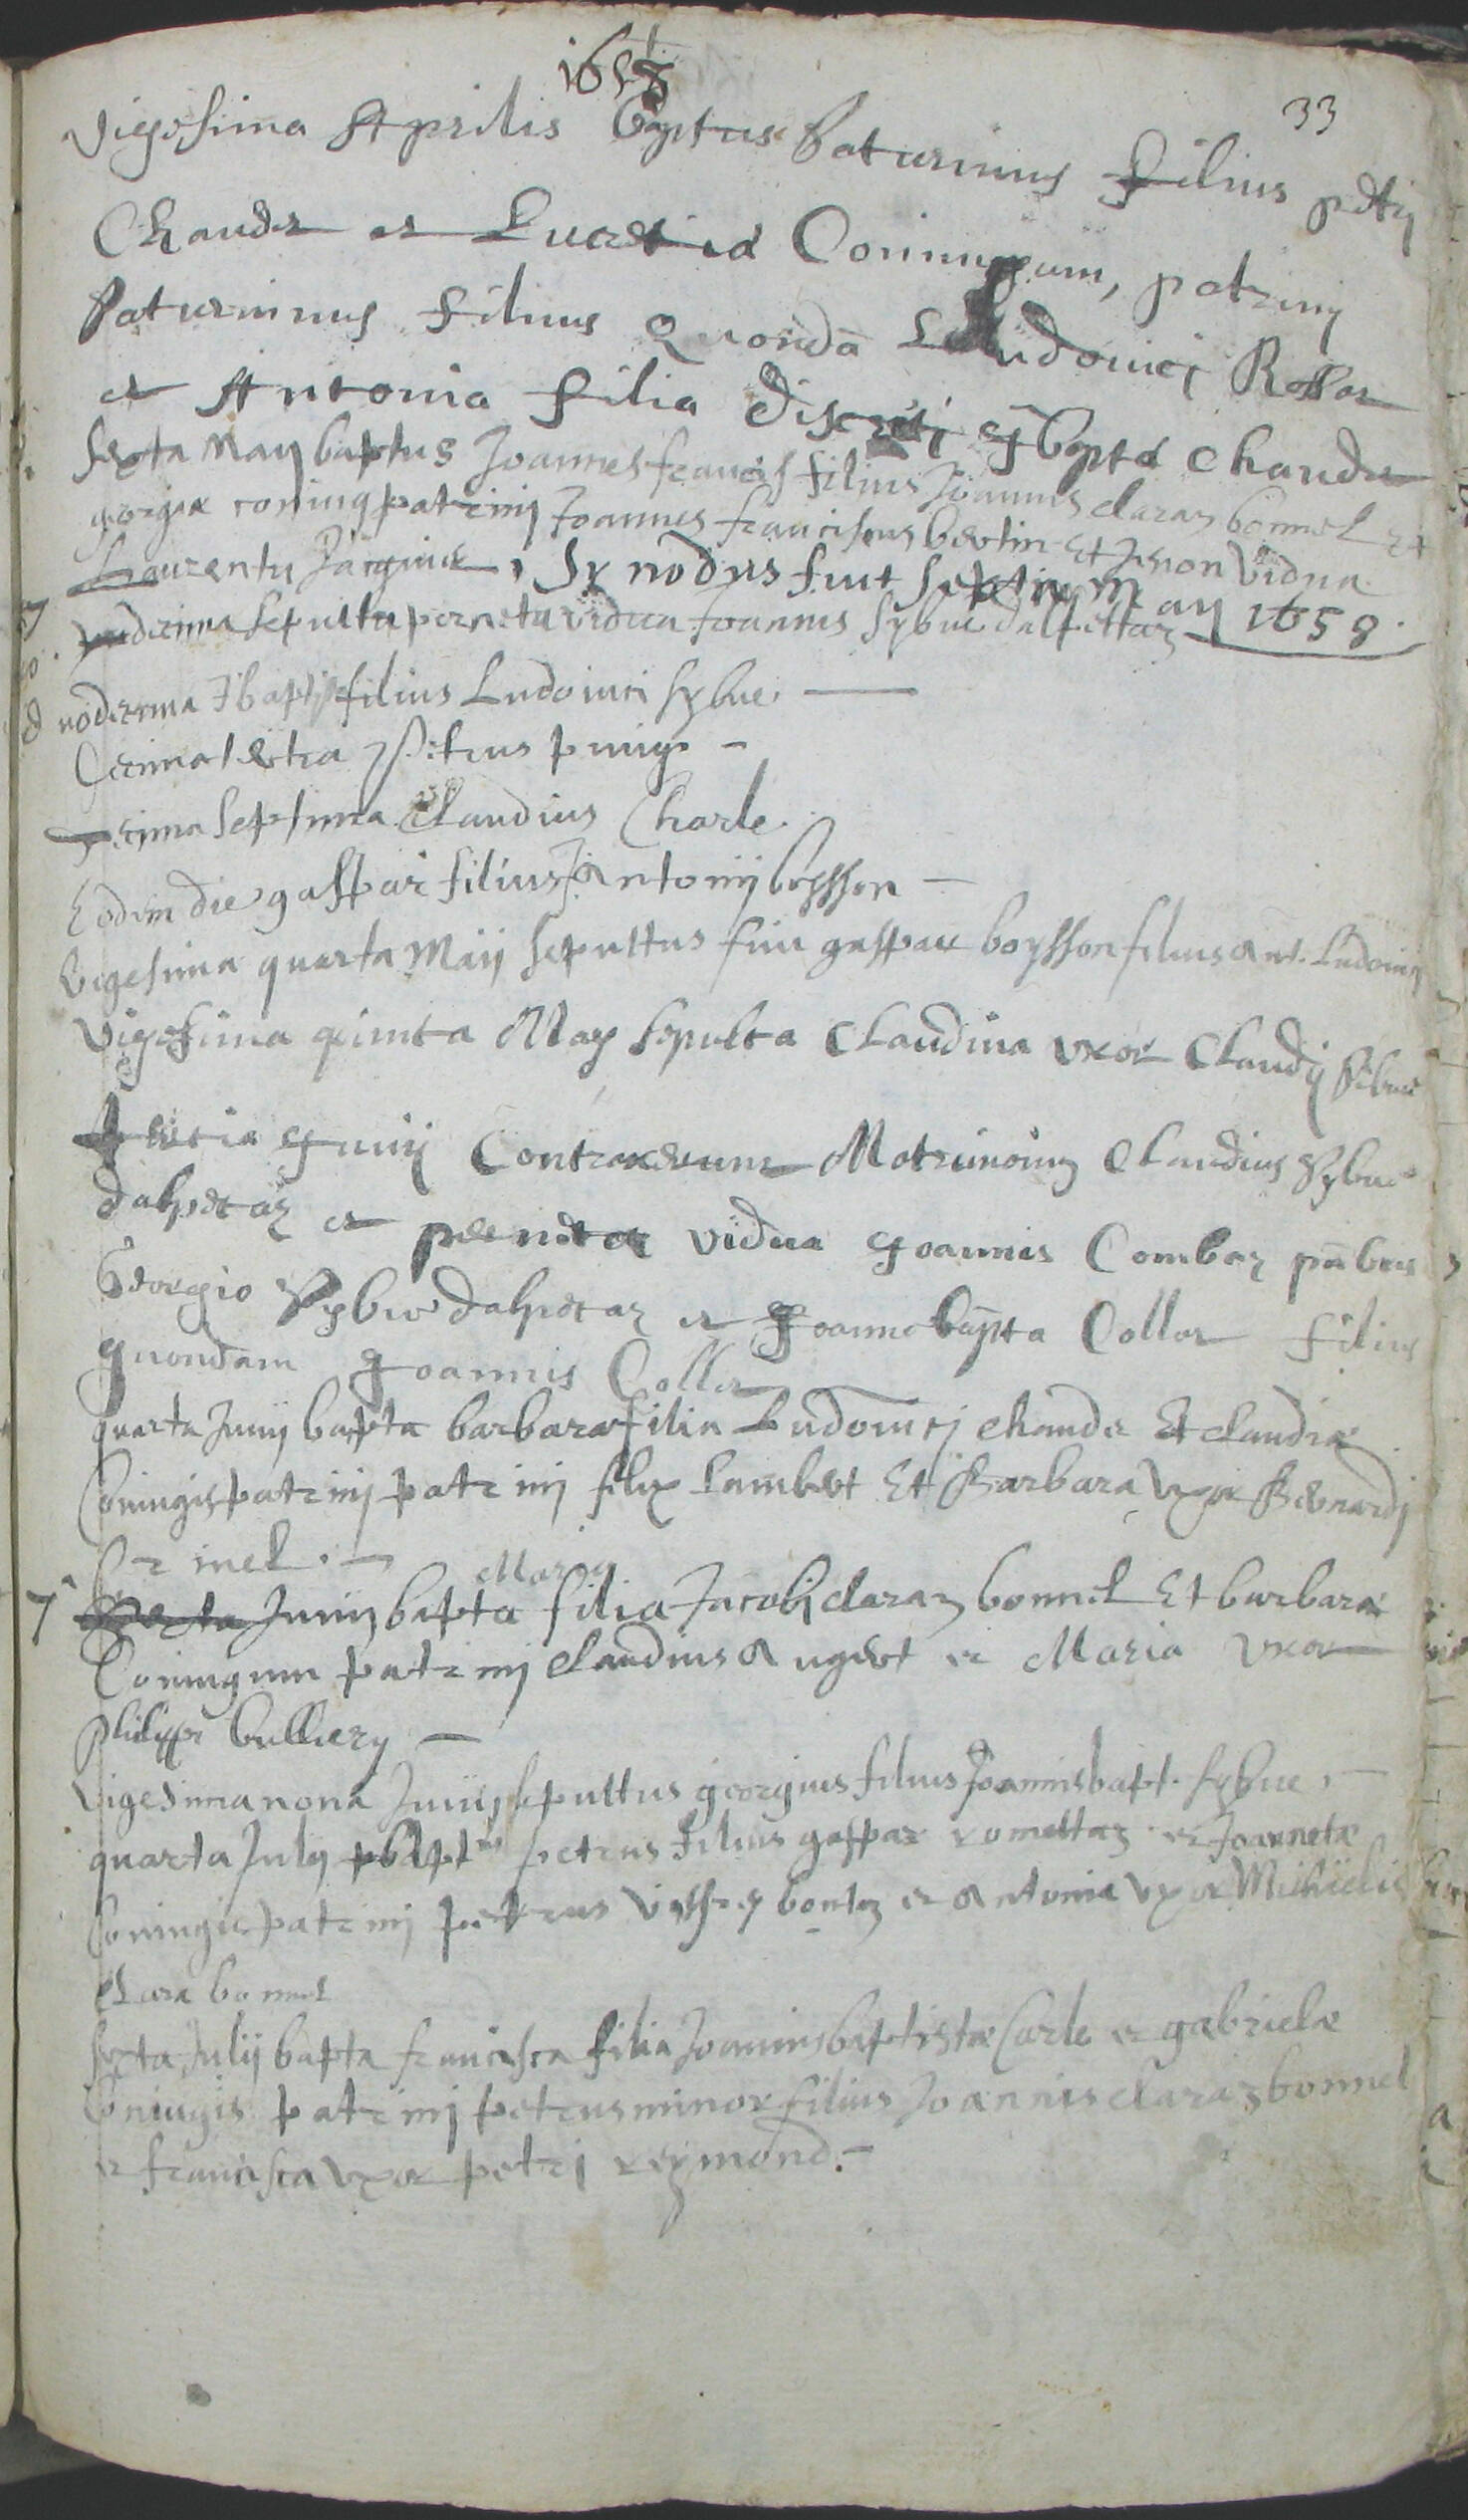 1658
33
Vigesima Aprilis baptus Saturninus filius petri
Chaudr et Lucretiæ Coniugum, patrinj
Saturninus filius quonda Ludovicj Rosset
et Antonia filia discreti Jõ bapta Chaudr
Sexta May baptus Joannes francis filius Joannis claraz bonnel Et
georgiæ coniug patrinij Joannes franciscus bertin Et Jenon vidua
Laurentij Jacquier, Synodus fuit septima may 1658.
undecima sepulta perneta vidua Joannis Sybue dalpettaz
duodecima J bapt filius Ludovici Sybue
Decima tertia petrus puiig
Decima septima Claudius Charle
Eodem die gaspar filius Antonij boysson
Vigesima quarta Maij sepultus fuit gaspar boysson filius Ant. Ludovici
Vigesima quinta May sepulta Claudina uxor Claudij Sibue
tertia Junij Contraxerunt Matrimoniu Claudius Sybue
dalpetaz et perneta vidua Joannis Combaz pñtibus
Georgio Sybue dalpetaz et Joanne bapta Collet filius
quondam Joannis Collet
quarta Junij bapta barbara filia Ludovicj chaudr Et claudiæ
Coniugis patrinij patrinij felix Lambert Et Barbara uxor Bernardj
Ormel.
7ª Sexta Junij bapta Maria filia Jacobj claraz bonnel Et barbaræ
Coniugum patrinij claudius Augert et Maria uxor
philippi bulliery
Vigesima nona Junij sepultus georgius filius Joannis bapt. Sybue
quarta July baptus petrus filius gaspar romettaz et Joannetæ
Coniugis patrinij petrus bontaz et Antonia uxor Michaelis
Clara bonnel
Sexta Julij bapta francisca filia Joannis baptistæ Carle et gabrielæ
Coniugis patrinij petrus minor filius Joannis claraz bonnel
et francisca uxor petrj reymond.